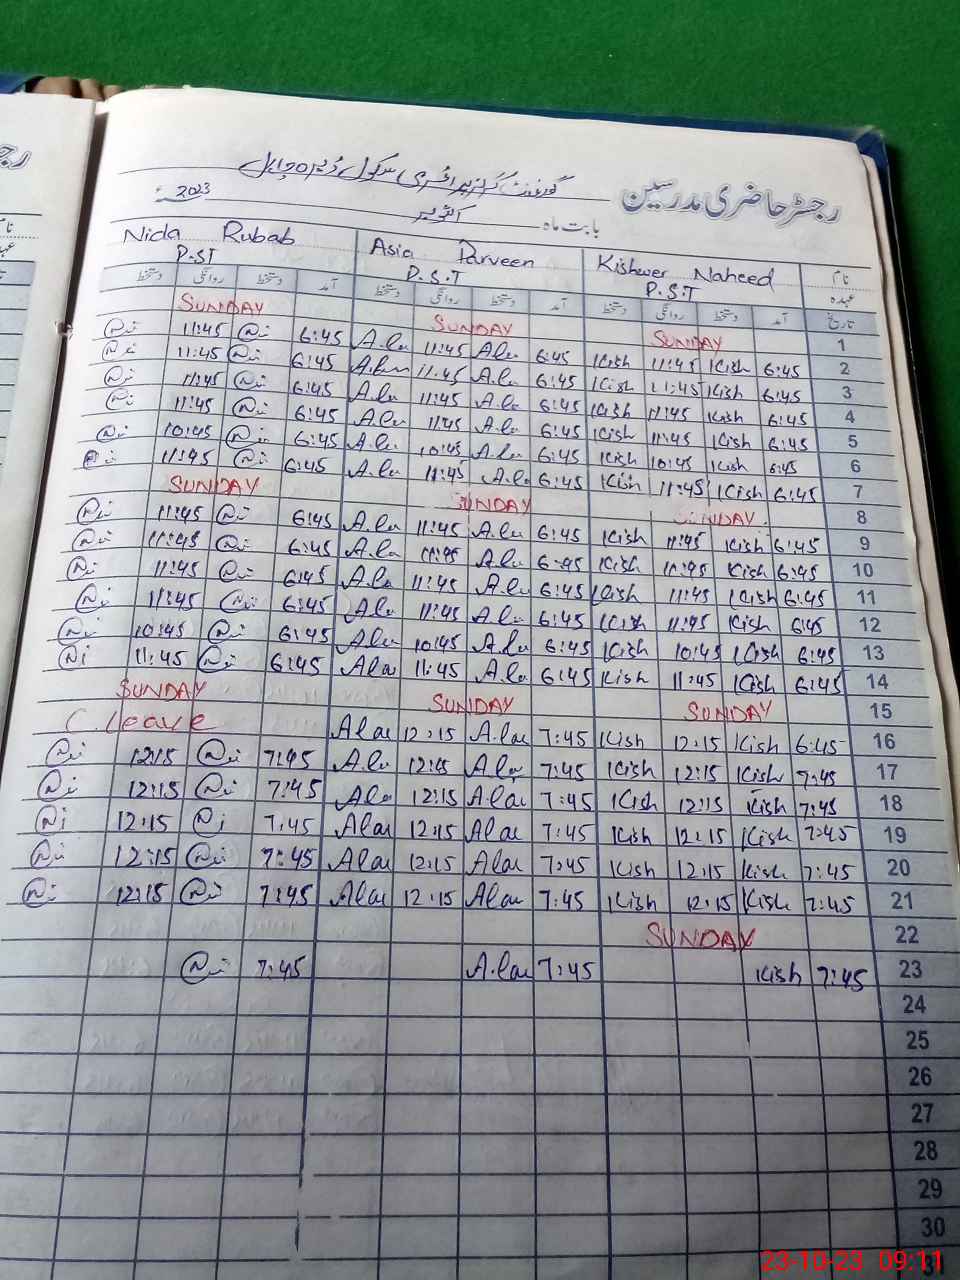 رجسٹر حاضری مدرسین
گورنمنٹ گرلز پرائمری سکول ڈیرہ
بابت ماہ اکتوبر 2023ء
Nida Rubab Asia Parveen Kishwer Naheed نام
P.ST P.S.T P.S.T عہدہ
دستخط روانگی دستخط آمد دستخط روانگی دستخط آمد دستخط روانگی دستخط آمد تاریخ
SUNDAY SUNDAY SUNDAY 1
11:45 6:45 A.la 11:45 Ala 6:45 Kish 11:45 Kish 6:45 2
11:45 6:45 A.la 11:45 A.la 6:45 Kish 11:45 Kish 6:45 3
11:45 6:45 A.la 11:45 A.la 6:45 Kish 11:45 Kish 6:45 4
11:45 6:45 A.la 11:45 A.la 6:45 Kish 11:45 Kish 6:45 5
10:45 6:45 A.la 10:45 A.la 6:45 Kish 10:45 Kish 6:45 6
11:45 6:45 A.la 11:45 A.la 6:45 Kish 11:45 Kish 6:45 7
SUNDAY SUNDAY SUNDAY 8
11:45 6:45 A.la 11:45 A.la 6:45 Kish 11:45 Kish 6:45 9
11:45 6:45 A.la 11:45 A.la 6:45 Kish 11:45 Kish 6:45 10
11:45 6:45 A.la 11:45 A.la 6:45 Kish 11:45 Kish 6:45 11
11:45 6:45 Ala 11:45 A.la 6:45 Kish 11:45 Kish 6:45 12
10:45 6:45 Ala 10:45 A.la 6:45 Kish 10:45 Kish 6:45 13
11:45 6:45 Ala 11:45 A.la 6:45 Kish 11:45 Kish 6:45 14
SUNDAY SUNDAY SUNDAY 15
C.leave Ala 12:15 A.la 7:45 Kish 12:15 Kish 6:45 16
12:15 7:45 A.la 12:45 A.la 7:45 Kish 12:15 Kish 7:45 17
12:15 7:45 Ala 12:15 A.la 7:45 Kish 12:15 Kish 7:45 18
12:15 7:45 Ala 12:15 Ala 7:45 Kish 12:15 Kish 7:45 19
12:15 7:45 Ala 12:15 Ala 7:45 Kish 12:15 Kish 7:45 20
12:15 7:45 Ala 12:15 Ala 7:45 Kish 12:15 Kish 7:45 21
SUNDAY 22
7:45 A.la 7:45 Kish 7:45 23
24
25
26
27
28
29
30
23-10-23 09:11